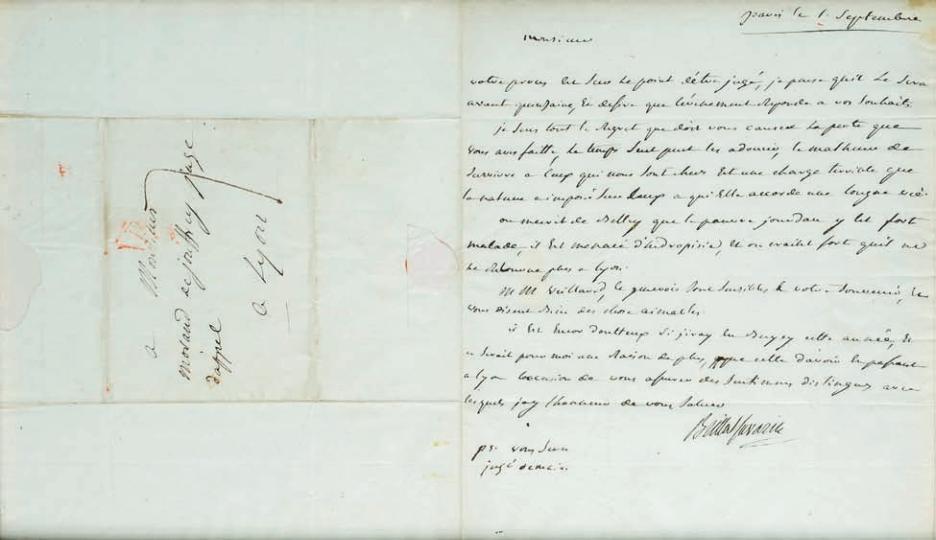 à
Monsieur
Morand de jouffrey juge
d'appel
a Lyon
paris le 1. Septembre
monsieur
votre proces est sur le point d'être jugé, je pense qu'il le sera
avant quinzaine, et desire que l'evenement reponde a vos souhaits
je sens tout le regret que doit vous causer la perte que
vous avés faitte, le temps seul peut les adoucir, le malheur de
survivre a ceux qui nous sont chers est une charge terrible que
la nature a imposé sur ceux a qui elle accorde une longue vie.
on m'ecrit de Belley que le pauvre jourdan y est fort
malade, il est menacé d'hidropisie, et on craint fort qu'il ne
retourne plus a Lyon.
M M vous disent bien des choses aimables.
il est encor doutteux si j'iray en Bugey cette année, et
ce serait pour moi une raison de plus, que celle d'avoir en passant
a Lyon l'occasion de vous assurer des sentimens distingués avec
lesquels j'ay l'honneur de vous saluer
Brillat Savarin
ps. vous sera
jugé demain